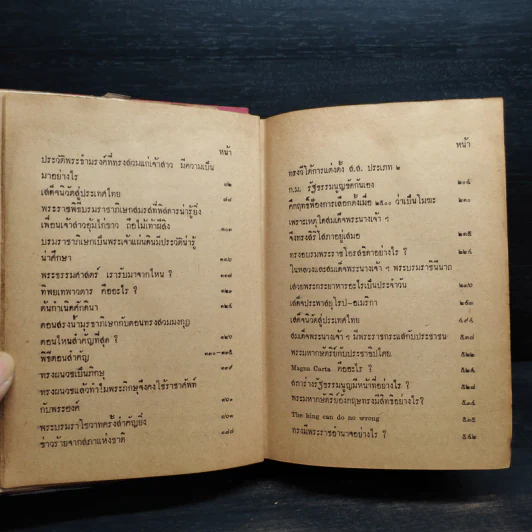 หน้า
ประวัติพระธำมรงค์ที่ทรงสวมแก่เจ้าสาว มีความเป็น
มาอย่างไร ๗๒
เสด็จนิวัตสู่ประเทศไทย ๗๘
พระราชพิธีบรมราชาภิเษกสมรสที่พิสดารน่ารู้ยิ่ง
เพื่อนเจ้าสาวอุ้มไก่ขาว ถือไม้เท้าผีสิง ๑๐๓
บรมราชาภิเษกเป็นพระเจ้าแผ่นดินมีประวัติน่ารู้
น่าศึกษา ๑๑๖
พระธรรมศาสตร์ เรารับมาจากไหน ? ๑๑๗
ทิพยเทพาวตาร คืออะไร ? ๑๒๑
ต้นกำเนิดศักดินา ๑๒๕
ตอนสรงน้ำมุรธาภิเษกกับตอนทรงสวมมงกุฎ
ตอนไหนสำคัญที่สุด ? ๑๒๖
พิธีตอนสำคัญ ๑๓๐-๑๓๕
ทรงผนวชเป็นภิกษุ ๑๕๙
ทรงผนวชแล้วทำไมพระภิกษุจึงคงใช้ราชาศัพท์
กับพระองค์ ๑๗๐
พระบรมราโชวาทครั้งสำคัญยิ่ง ๑๗๓
ข่าวร้ายจากสภาแห่งชาติ ๑๘๘
หน้า
ทรงวีโต้การแต่งตั้ง ส.ส. ประเภท ๒
ก.ม. รัฐธรรมนูญขัดกันเอง ๒๐๕
คดีฤทธิ์ฟ้องการเลือกตั้งเมื่อ ๒๕๐๐ ว่าเป็นโมฆะ ๒๓๐
เพราะเหตุใดสมเด็จพระนางเจ้า ฯ
จึงทรงสิริโสภาอยู่เสมอ ๒๓๕
ทรงอบรมพระราชโอรสธิดาอย่างไร ? ๒๕๑
ในหลวงและสมเด็จพระนางเจ้า ฯ พระบรมราชินีนาถ
เสวยพระกระยาหารอะไรเป็นประจำวัน ๒๕๖
เสด็จประพาสยุโรป-อเมริกา ๒๖๓
เสด็จนิวัตสู่ประเทศไทย ๔๙๕
สมเด็จพระนางเจ้า ฯ มีพระราชกระแสกับประชาชน ๕๑๗
พระมหากษัตริย์กับประชาธิปไตย ๕๒๒
Magna Carta คืออะไร ? ๕๒๘
สภาร่างรัฐธรรมนูญมีหน้าที่อย่างไร? ๕๒๙
พระมหากษัตริย์อังกฤษทรงมีสิทธิอย่างไร? ๕๓๑
The king can do no wrong ๕๓๕
ทรงมีพระราชอำนาจอย่างไร ? ๕๔๒